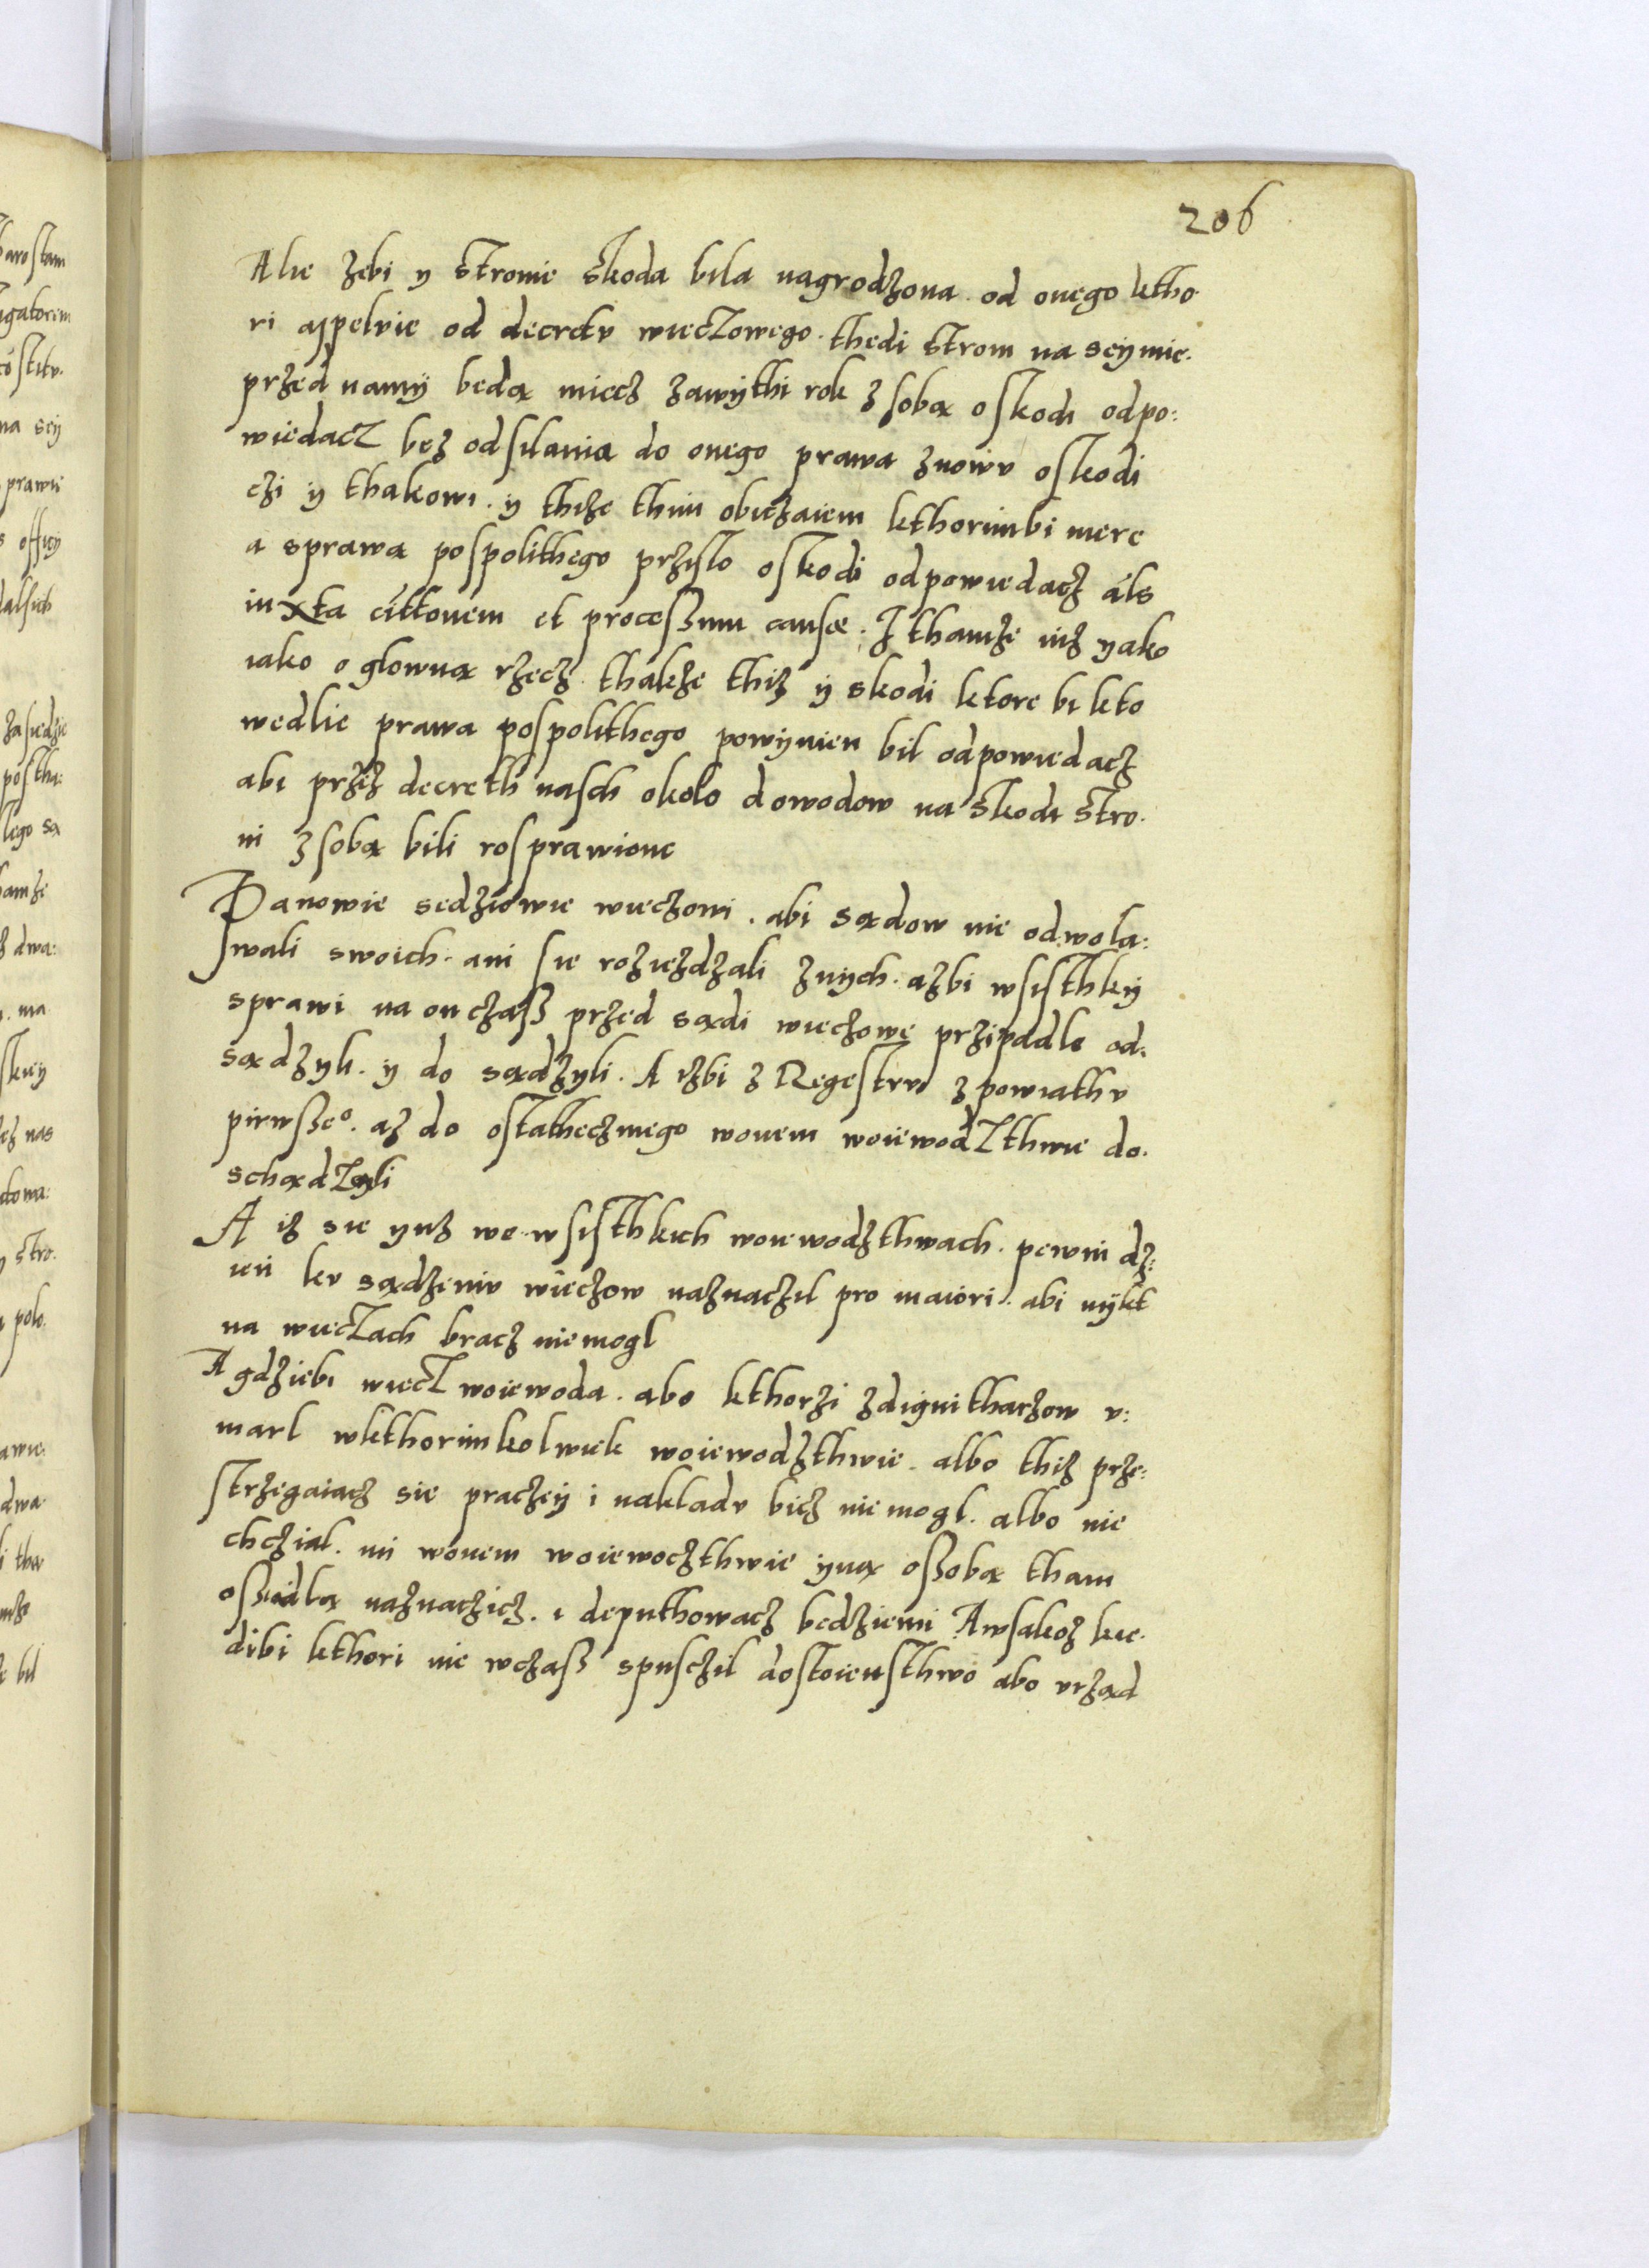 206
Alie zebi y stronie skoda bila nagrodzona od onego ktho
ri appeluie od decretv wieczowego. thedi stroni na seijmie.
przed namÿ beda miecz zawÿthi rok z soba o skodi odpo:
wiedacz bez odsilania do onego prawa znowv o skodi
czi y thakowi. y thize thim obiczaiem kthorimbi mere
a sprawa pospolithego przislo o skodi odpowiedacz als
iuxta cittonem et processum causæ. I thamze iuz yako
iako o glowna rzecz thakze thiz ÿ skodi ktore bi kto
wedlie prawa pospolithego powÿnien bil odpowiedacz
abi przez decreth nasch okolo dowodow na skodi stro.
ni z soba bili rosprawione
Panowie sedziowie wieczowi. abi sadow nie odwola:
wali swoich. ani sie roziezdzali znÿch. azbi wsisthkÿ
sprawi na on czass przed sadi wieczowe przipadle od,
sadzyli. y do sadzyli. A izbi z Regestrv z powiathv
pirwsseo. az do ostathecznego wonem woiewodzthwie do.
schadzyli
A iz sie yuz we wsisthkich woiewodzthwach. pewni dz:
ien kv sadzeniv wieczow naznaczil pro maiori. abi nÿkt
na wieczach bracz niemogl
A gdziebi wiecz woiewoda. abo kthorzi zdignitharzow v:
marl wkthorimkolwiek woiewodzthwie. albo thiz prze:
strzegaiacz sie praczeÿ i nakladv bicz nie mogl. albo nie
chczial. mi wonem woiewoczthwie ÿna ossoba tham
ossiadla naznaczicz. i deputhowacz bedziemi A wsakoz kie.
dibi kthori nie wczass spusczil dostoiensthwo abo vrzad